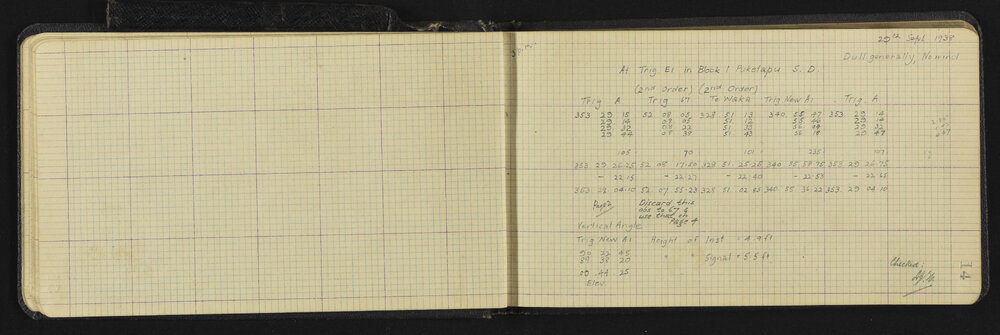 29th Sept. 1938
Dull generally, No wind
At Trig. E1 in Block 1 Puketapu S. D.
(2nd Order) (2nd Order)
Trig A Trig 67 Te Waka Trig New A1 Trig A
353 29 15 52 08 05 328 51 13 340 55 47 353 29 14
29 14 08 05 51 12 55 46 29 14
29 32 08 22 51 33 56 44 29 32
29 44 08 38 51 43 56 18 29 47
105 70 101 235 107
353 29 26.25 52 08 17.50 328 51 25.25 340 55 58.75 353 29 26.75
- 22.15 - 22.27 - 22.40 - 22.53 - 22.65
353 29 04.10 52 07 55.23 328 51 02.85 340 55 36.22 353 29 04.10
Page 2
Discard this
obs to 67 &
use that on
Page 4
Vertical Angle
Trig New A1 Height of Inst = 4.9 ft
90 22 45
89 38 20 " " Signal = 5.5 ft
00 44 25
Elev.
Checked:
14